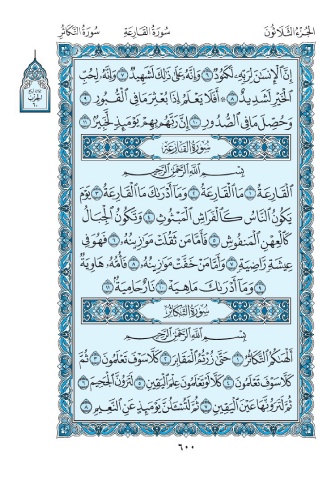 الجزء الثلاثون سورة القارعة سورة التكاثر
إِنَّ ٱلۡإِنسَٰنَ لِرَبِّهِۦ لَكَنُودٞ ٦ وَإِنَّهُۥ عَلَىٰ ذَٰلِكَ لَشَهِيدٞ ٧ وَإِنَّهُۥ لِحُبِّ
ٱلۡخَيۡرِ لَشَدِيدٌ ٨ ۞ أَفَلَا يَعۡلَمُ إِذَا بُعۡثِرَ مَا فِي ٱلۡقُبُورِ ٩
وَحُصِّلَ مَا فِي ٱلصُّدُورِ ١٠ إِنَّ رَبَّهُم بِهِمۡ يَوۡمَئِذٖ لَّخَبِيرُۢ ١١
سورة القارعة
بِسۡمِ ٱللَّهِ ٱلرَّحۡمَٰنِ ٱلرَّحِيمِ
ٱلۡقَارِعَةُ ١ مَا ٱلۡقَارِعَةُ ٢ وَمَآ أَدۡرَىٰكَ مَا ٱلۡقَارِعَةُ ٣ يَوۡمَ
يَكُونُ ٱلنَّاسُ كَٱلۡفَرَاشِ ٱلۡمَبۡثُوثِ ٤ وَتَكُونُ ٱلۡجِبَالُ
كَٱلۡعِهۡنِ ٱلۡمَنفُوشِ ٥ فَأَمَّا مَن ثَقُلَتۡ مَوَٰزِينُهُۥ ٦ فَهُوَ فِي
عِيشَةٖ رَّاضِيَةٖ ٧ وَأَمَّا مَنۡ خَفَّتۡ مَوَٰزِينُهُۥ ٨ فَأُمُّهُۥ هَاوِيَةٞ
٩ وَمَآ أَدۡرَىٰكَ مَا هِيَهۡ ١٠ نَارٌ حَامِيَةُۢ ١١
سورة التكاثر
بِسۡمِ ٱللَّهِ ٱلرَّحۡمَٰنِ ٱلرَّحِيمِ
أَلۡهَىٰكُمُ ٱلتَّكَاثُرُ ١ حَتَّىٰ زُرۡتُمُ ٱلۡمَقَابِرَ ٢ كَلَّا سَوۡفَ تَعۡلَمُونَ ٣ ثُمَّ
كَلَّا سَوۡفَ تَعۡلَمُونَ ٤ كَلَّا لَوۡ تَعۡلَمُونَ عِلۡمَ ٱلۡيَقِينِ ٥ لَتَرَوُنَّ ٱلۡجَحِيمَ ٦
ثُمَّ لَتَرَوُنَّهَا عَيۡنَ ٱلۡيَقِينِ ٧ ثُمَّ لَتُسۡـَٔلُنَّ يَوۡمَئِذٍ عَنِ ٱلنَّعِيمِ ٨
الحزب
٦٠
٦٠٠